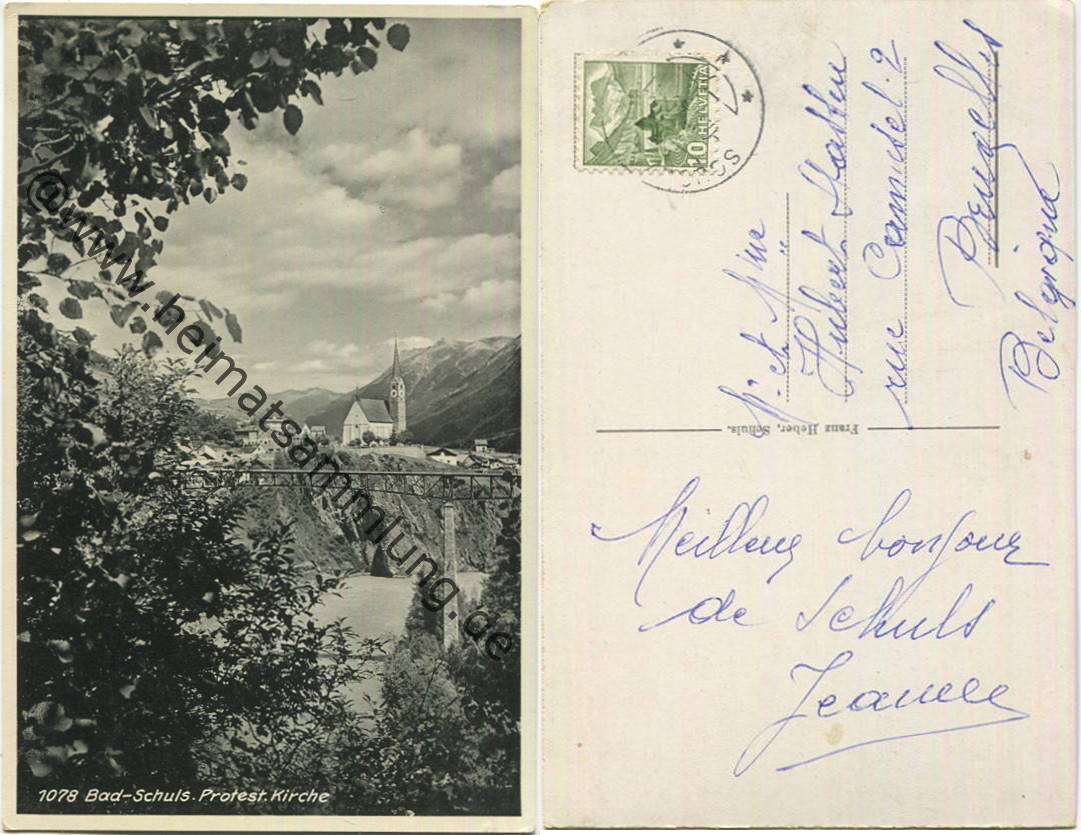 1078 Bad-Schuls. Protest. Kirche
@www.heimatsammlung.de
HELVETIA
Mr et Mme
Hubert
rue
Bruxelles
Belgique
Franz Heber, Schuls.
Meilleur bonjour
de Schuls
Jeanne